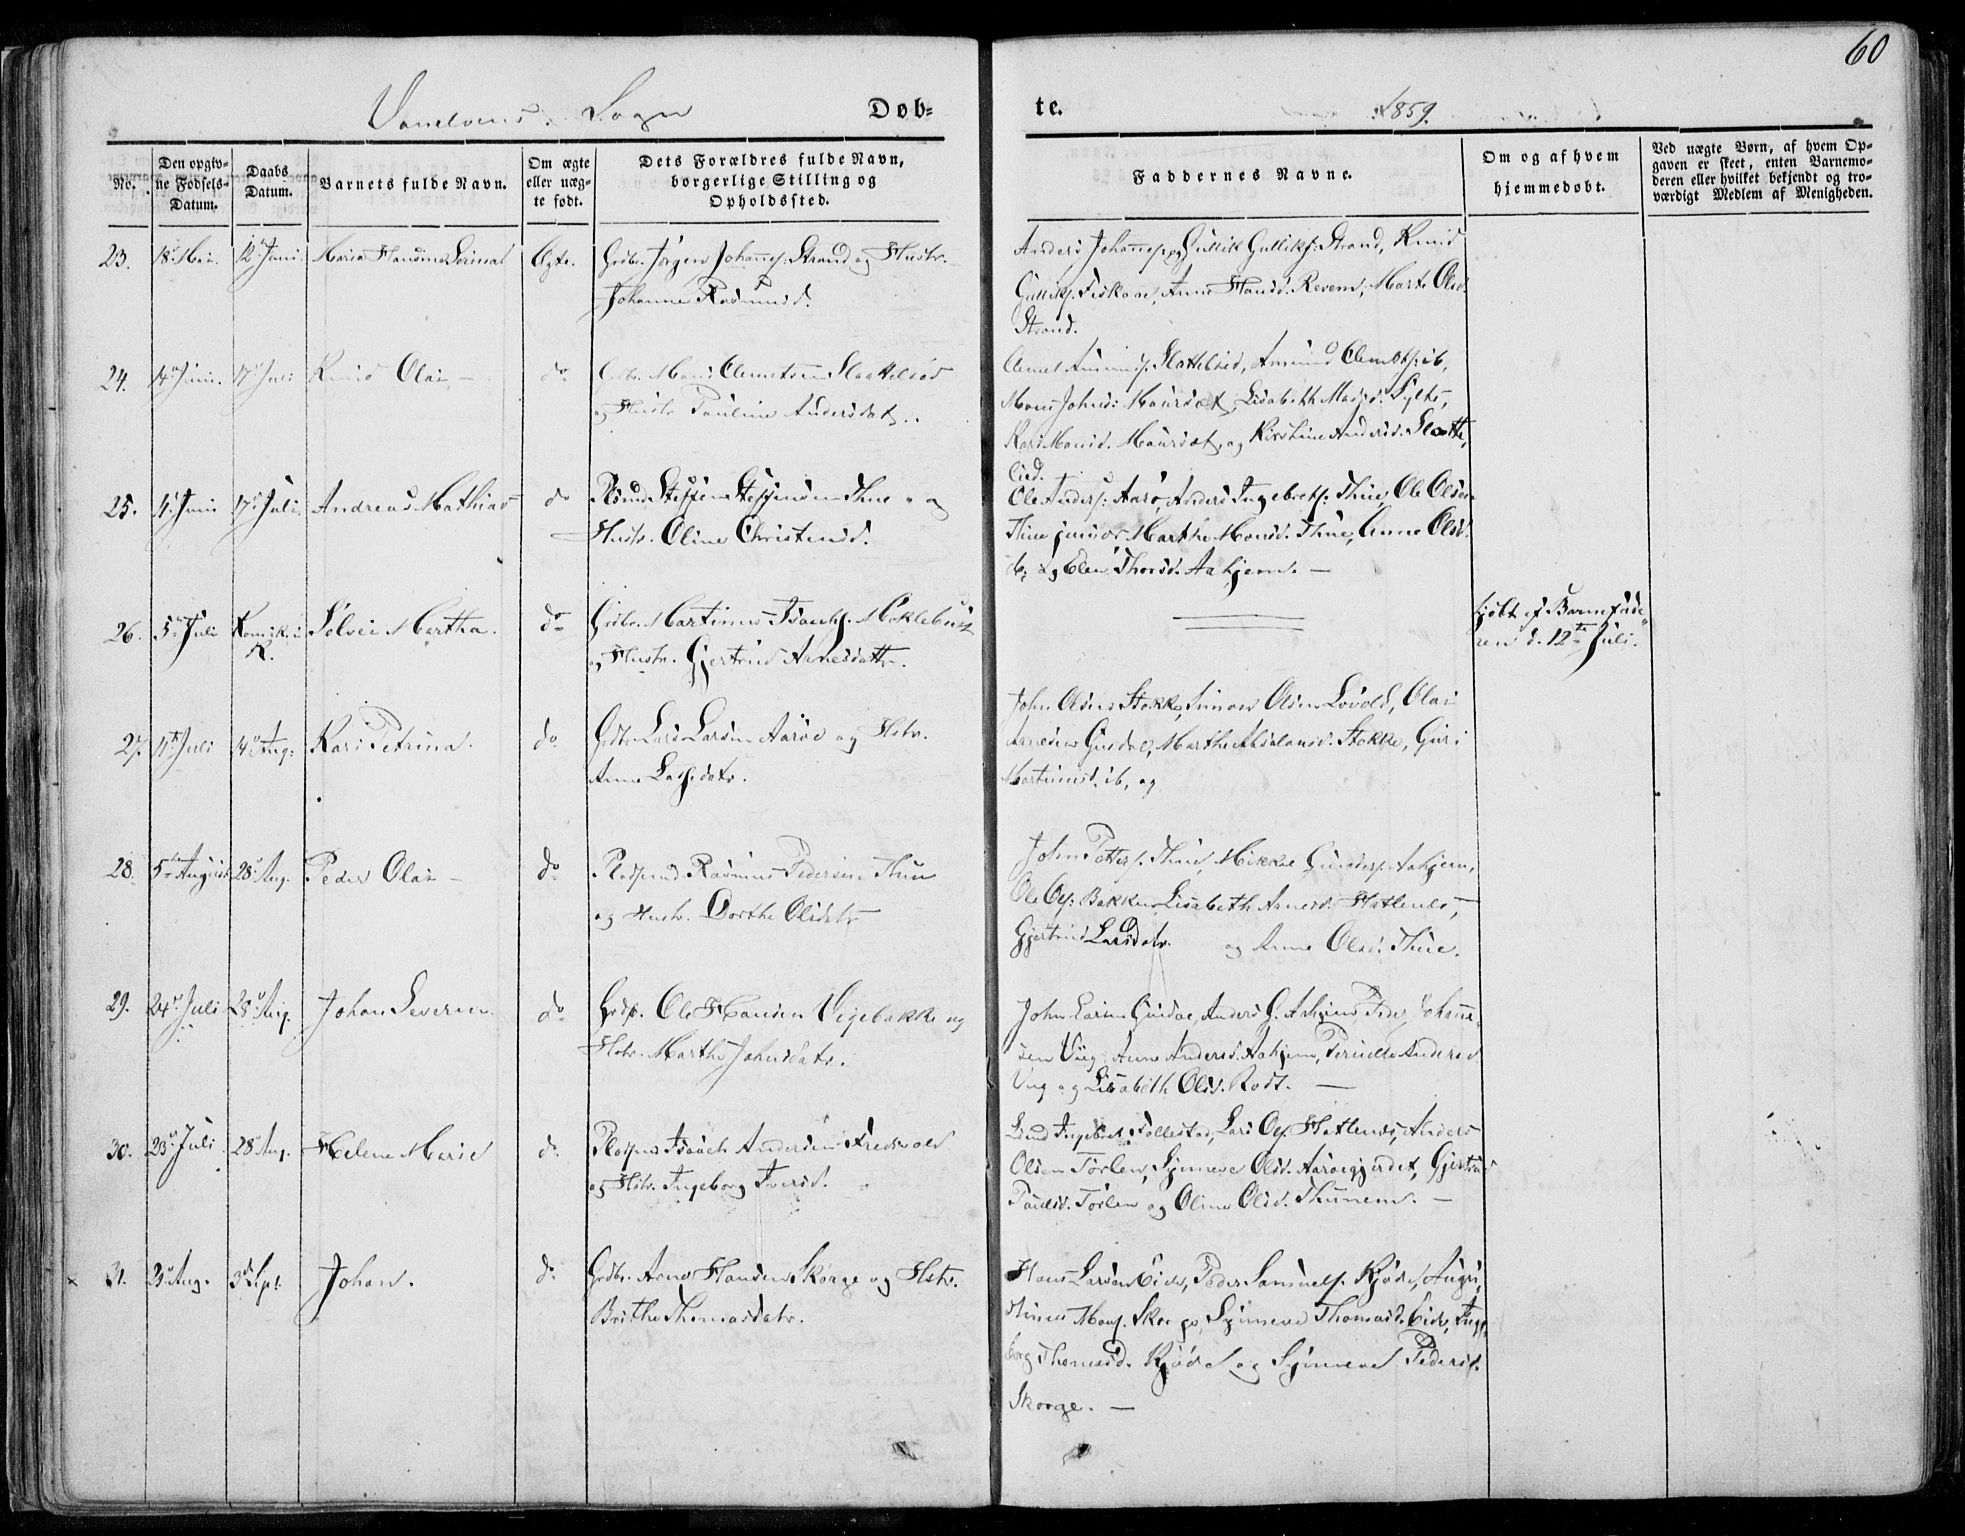 60
Vanelvens Sogn Døb=
te. 1859.
No.
Den opgiv=
ne Fødsels=
Datum.
Daabs
Datum.
Barnets fulde Navn.
Om ægte
eller uæg=
te født.
Dets Forældres fulde Navn,
borgerlige Stilling og
Opholdssted.
Faddernes Navne.
Om og af hvem
hjemmedøbt.
Ved uægte Børn, af hvem Op=
gaven er skeet, enten Barnemo=
deren eller hvilket bekjendt og tro=
værdigt Medlem af Menigheden.
23. 18 Mai. 12 Juni Ægte. Grdbr. Jørgen Johannes. Strand og Hustr.
Johanne Rasmusd.
Anders Johannes. og Gullik Gulliks. Strand, Knud
Gulliks. Anne Hansd. Marte Olsd.
Strand.
24. 14 Juni. 17 Juli Knud Olai do Grdbr. Mons Clemetsen Slattelied
og Hustr. Pauline Andersdat.
Clemet Slattelied, Amund Clemets. ib,
Mons Johns. Maursæt, Lisabeth Madsd. Sylte,
Kari Monsd. Maursæt, og Kirstine Andersd. Slatte,
lied.
25. 11 Juni 17 Juli Andreas Mathias do Steffen Steffensen Thue og
Hustr. Oline Christensd.
Ole Anders. Aarø, Anders Ingebrets. Thue, Ole Olsen
Thue junior, Marthe Monsd. Thue, Anne Olsd.
ib, og Elen Thorsd. Aahjem. —
26. 5 Juli Sølvei Martha. do Grdbr. Martinus Isachs. Moklebust
og Hustr. Gjertrud Arnesdatr.
Hjdbt af Barnefade
ren d. 12te Juli.
27. 11te Juli 14 Aug: Kari Petrina. do Grdbr. Lars Larsen Aarøe og Hstr.
Anne Larsdatr.
John Olsen Stokke, Simon Olsen Løvold, Olai
Arnesen Gusdal, Marthe Stokke, Guri
Martinusd. ib, og
28. 5te August 28 Aug. Peder Olai — do Pladsmd Rasmus Pedersen Thue
og Hustr. Dorthe Olsdatr
John Petters. Thue, Mikkel Gunders. Aahjem,
Ole Ols: Bakken, Lisabeth Arnesd. Hatlenes,
Gjertrud Larsdatr. og Anne Olsd. Thue.
29. 24 Juli 28 Aug. Johan Severin do Ole Hansen Vigebakke og
Hstr. Marthe Johnsdatr.
John Larsen Gusdal, Anders G. Aahjem, Peder Johann=
sen Viig, Anne Andersd. Aahjem, Pernille Andersd.
Viig og Lisabeth Olsd. Rødt. —
30. 23 Juli 28 Aug. Helene Marie do Isaach Andersen Fredsvold
og Hstr. Ingeborg Iversd.
Follestad, Lars Ols. Hatlenes, Anders
Olsen Tørlen, Synneve Olsd. Aarøegjerdet, Gjertrud
Paulsd. Tørlen og Oline Olsd. Thunem. —
31. 3 Aug. 3d Spt. Johan. do Grdbr. Arne Hansen Skorge og Hstr.
Brithe Thomasdatr.
Hans Larsen Eide, Peder Samuels. Kjøde, Augu,
stinus Mons. Skorge, Synneve Thomasd. Eide, Inge,
borg Thomasd. Kjøde og Synneve Pedersd.
Skorge. —